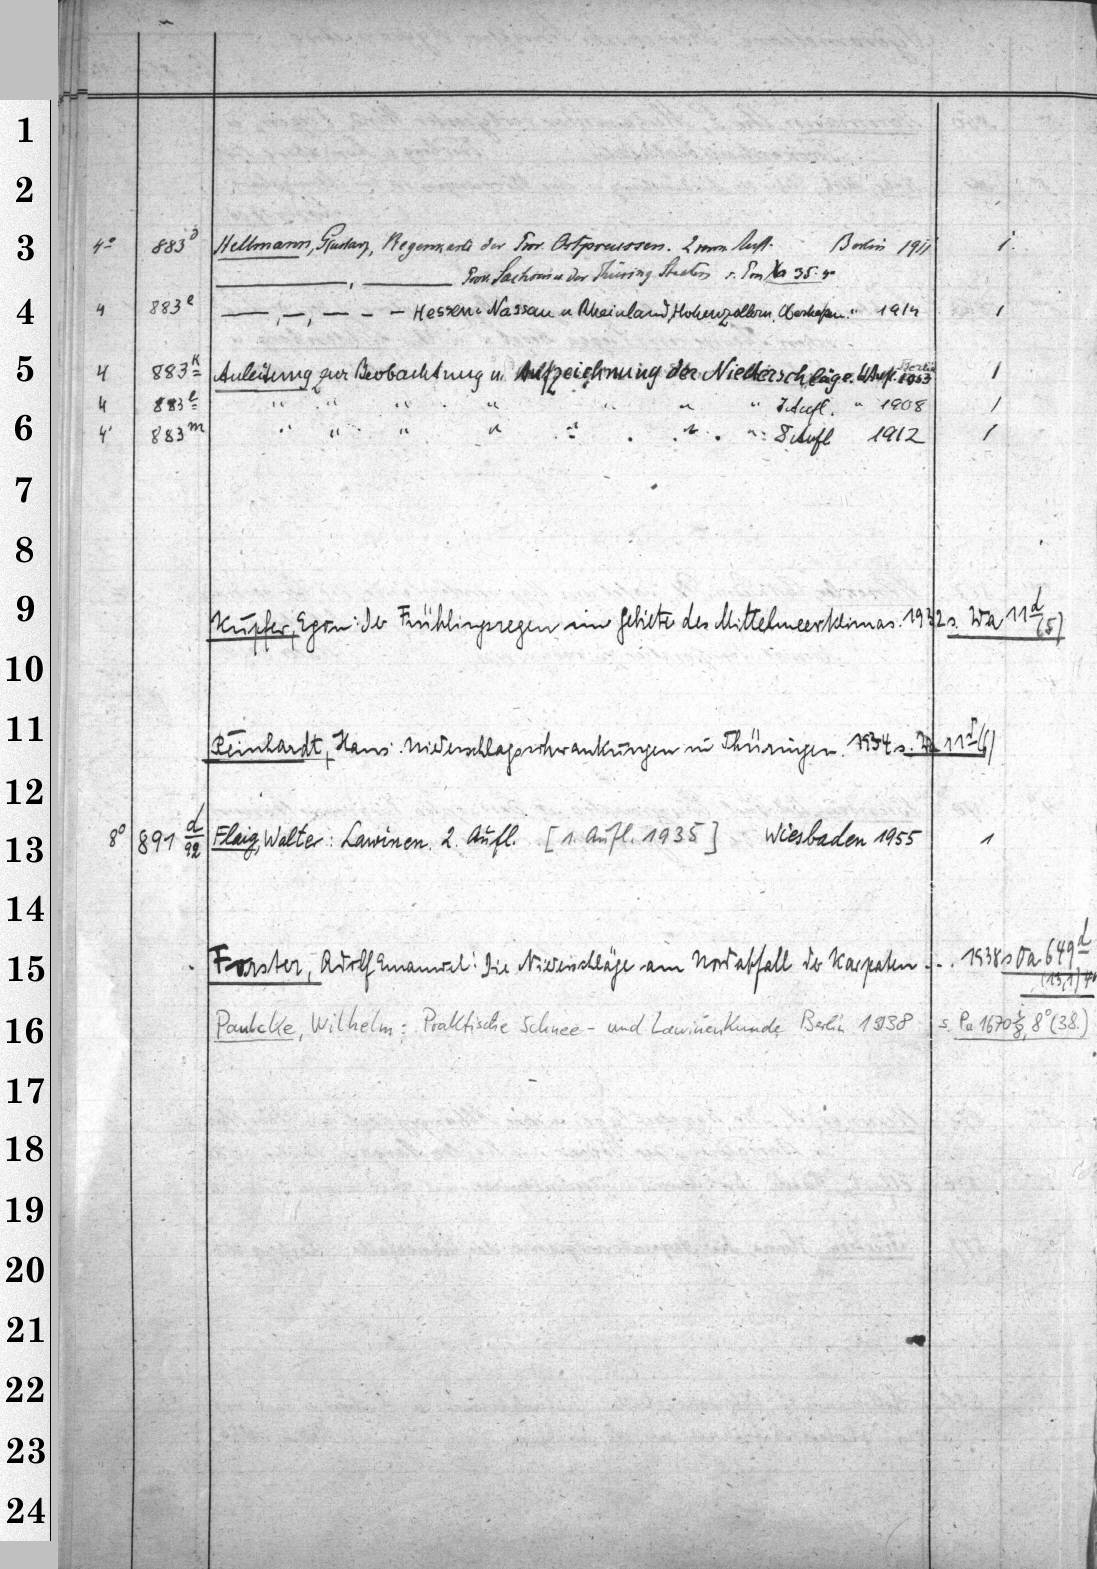 1
2
3 4° 883 Hellmann, Gustav, Regenkarte der Prov. Ostpreussen. 2 Aufl. Berlin 1911 1.
Prov. Sachsen u der Thüring. Staaten s. 35
4 4 883 — Hessen-Nassau u Rheinland, Hohenzollern, " 1914 1
5 4 883 k Anleitung zur Beobachtung u. Aufzeichnung der Niederschläge. Aufl. Berlin 1
4 883 l " " " " " " " 7 Aufl. " 1908 1
6 4° 883 m " " " " " " " 8 Aufl 1912 1
7
8
9 Kupfer, Egon: Die Frühlingsregen im Gebiete des Mittelmeerklimas. 1932 s. Wa 11 d (5)
10
11 Reinhardt, Hans. Niederschlagsschwankungen in Thüringen. 1934 s. Wa 11 d (6)
12
13 8° 891 d/92 Flaig, Walter: Lawinen. 2. Aufl. [1. Aufl. 1935] Wiesbaden 1955 1
14
15 Forster, Adolf Emanuel: Die Niederschläge am Nordabfall der Karpaten... 1938 s Oa 649 d
(13,1) 4°
16 Paulcke, Wilhelm: Praktische Schnee- und Lawinenkunde Berlin 1938 s. Pa 1670 8° (38.)
17
18
19
20
21
22
23
24